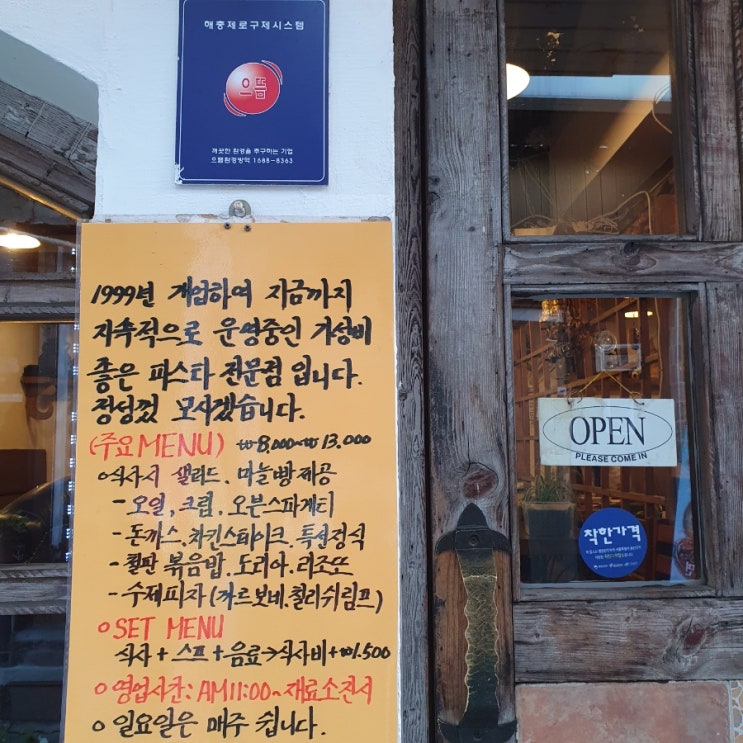 해충제로구제시스템
으뜸
깨끗한 환경을 추구하는 기업
으뜸환경방역 1688-8363
1999년 개업하여 지금까지
지속적으로 운영중인 가성비
좋은 파스타 전문점 입니다.
정성껏 모시겠습니다.
(주요 MENU) ₩8,000~₩13,000
○식사시 샐러드, 마늘빵 제공
- 오일, 크림, 오븐스파게티
- 돈까스, 치킨스테이크, 특선정식
- 철판 볶음밥, 도리아, 리조또
- 수제피자 (까르보네, 칠리쉬림프)
○ SET MENU
식사 + 스프 + 음료 → 식사비 + ₩1,500
○ 영업시간 : AM 11:00 ~ 재료소진시
○ 일요일은 매주 쉽니다.
OPEN
PLEASE COME IN
착한가격